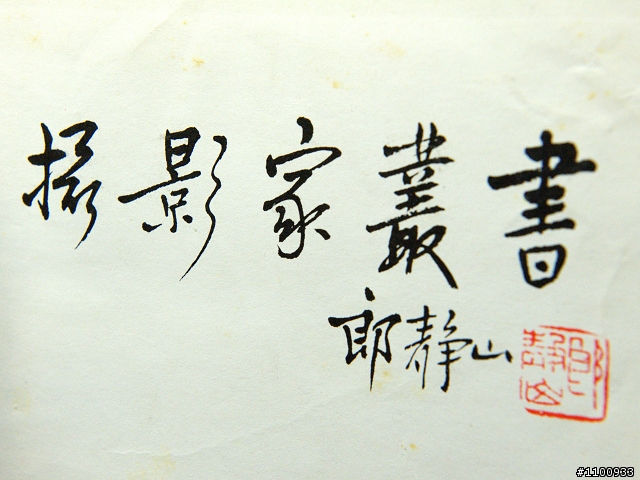 攝影家叢書
郎靜山
郎靜山
#1100933